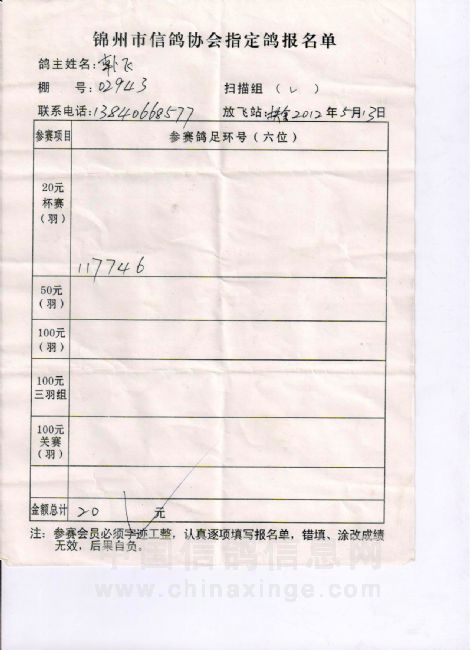 锦州市信鸽协会指定鸽报名单
鸽主姓名: 韩飞
棚 号: 02943 扫描组 (✓)
联系电话: 13840668577 放飞站: 2012年5月13日
参赛项目 参赛鸽足环号(六位)
20元
杯赛
(羽)
117746
50元
(羽)
100元
(羽)
100元
三羽组
100元
关赛
(羽)
金额总计 20 元
注: 参赛会员必须字迹工整, 认真逐项填写报名单, 错填、涂改成绩
无效, 后果自负。
中国信鸽信息网
www.chinaxinge.com